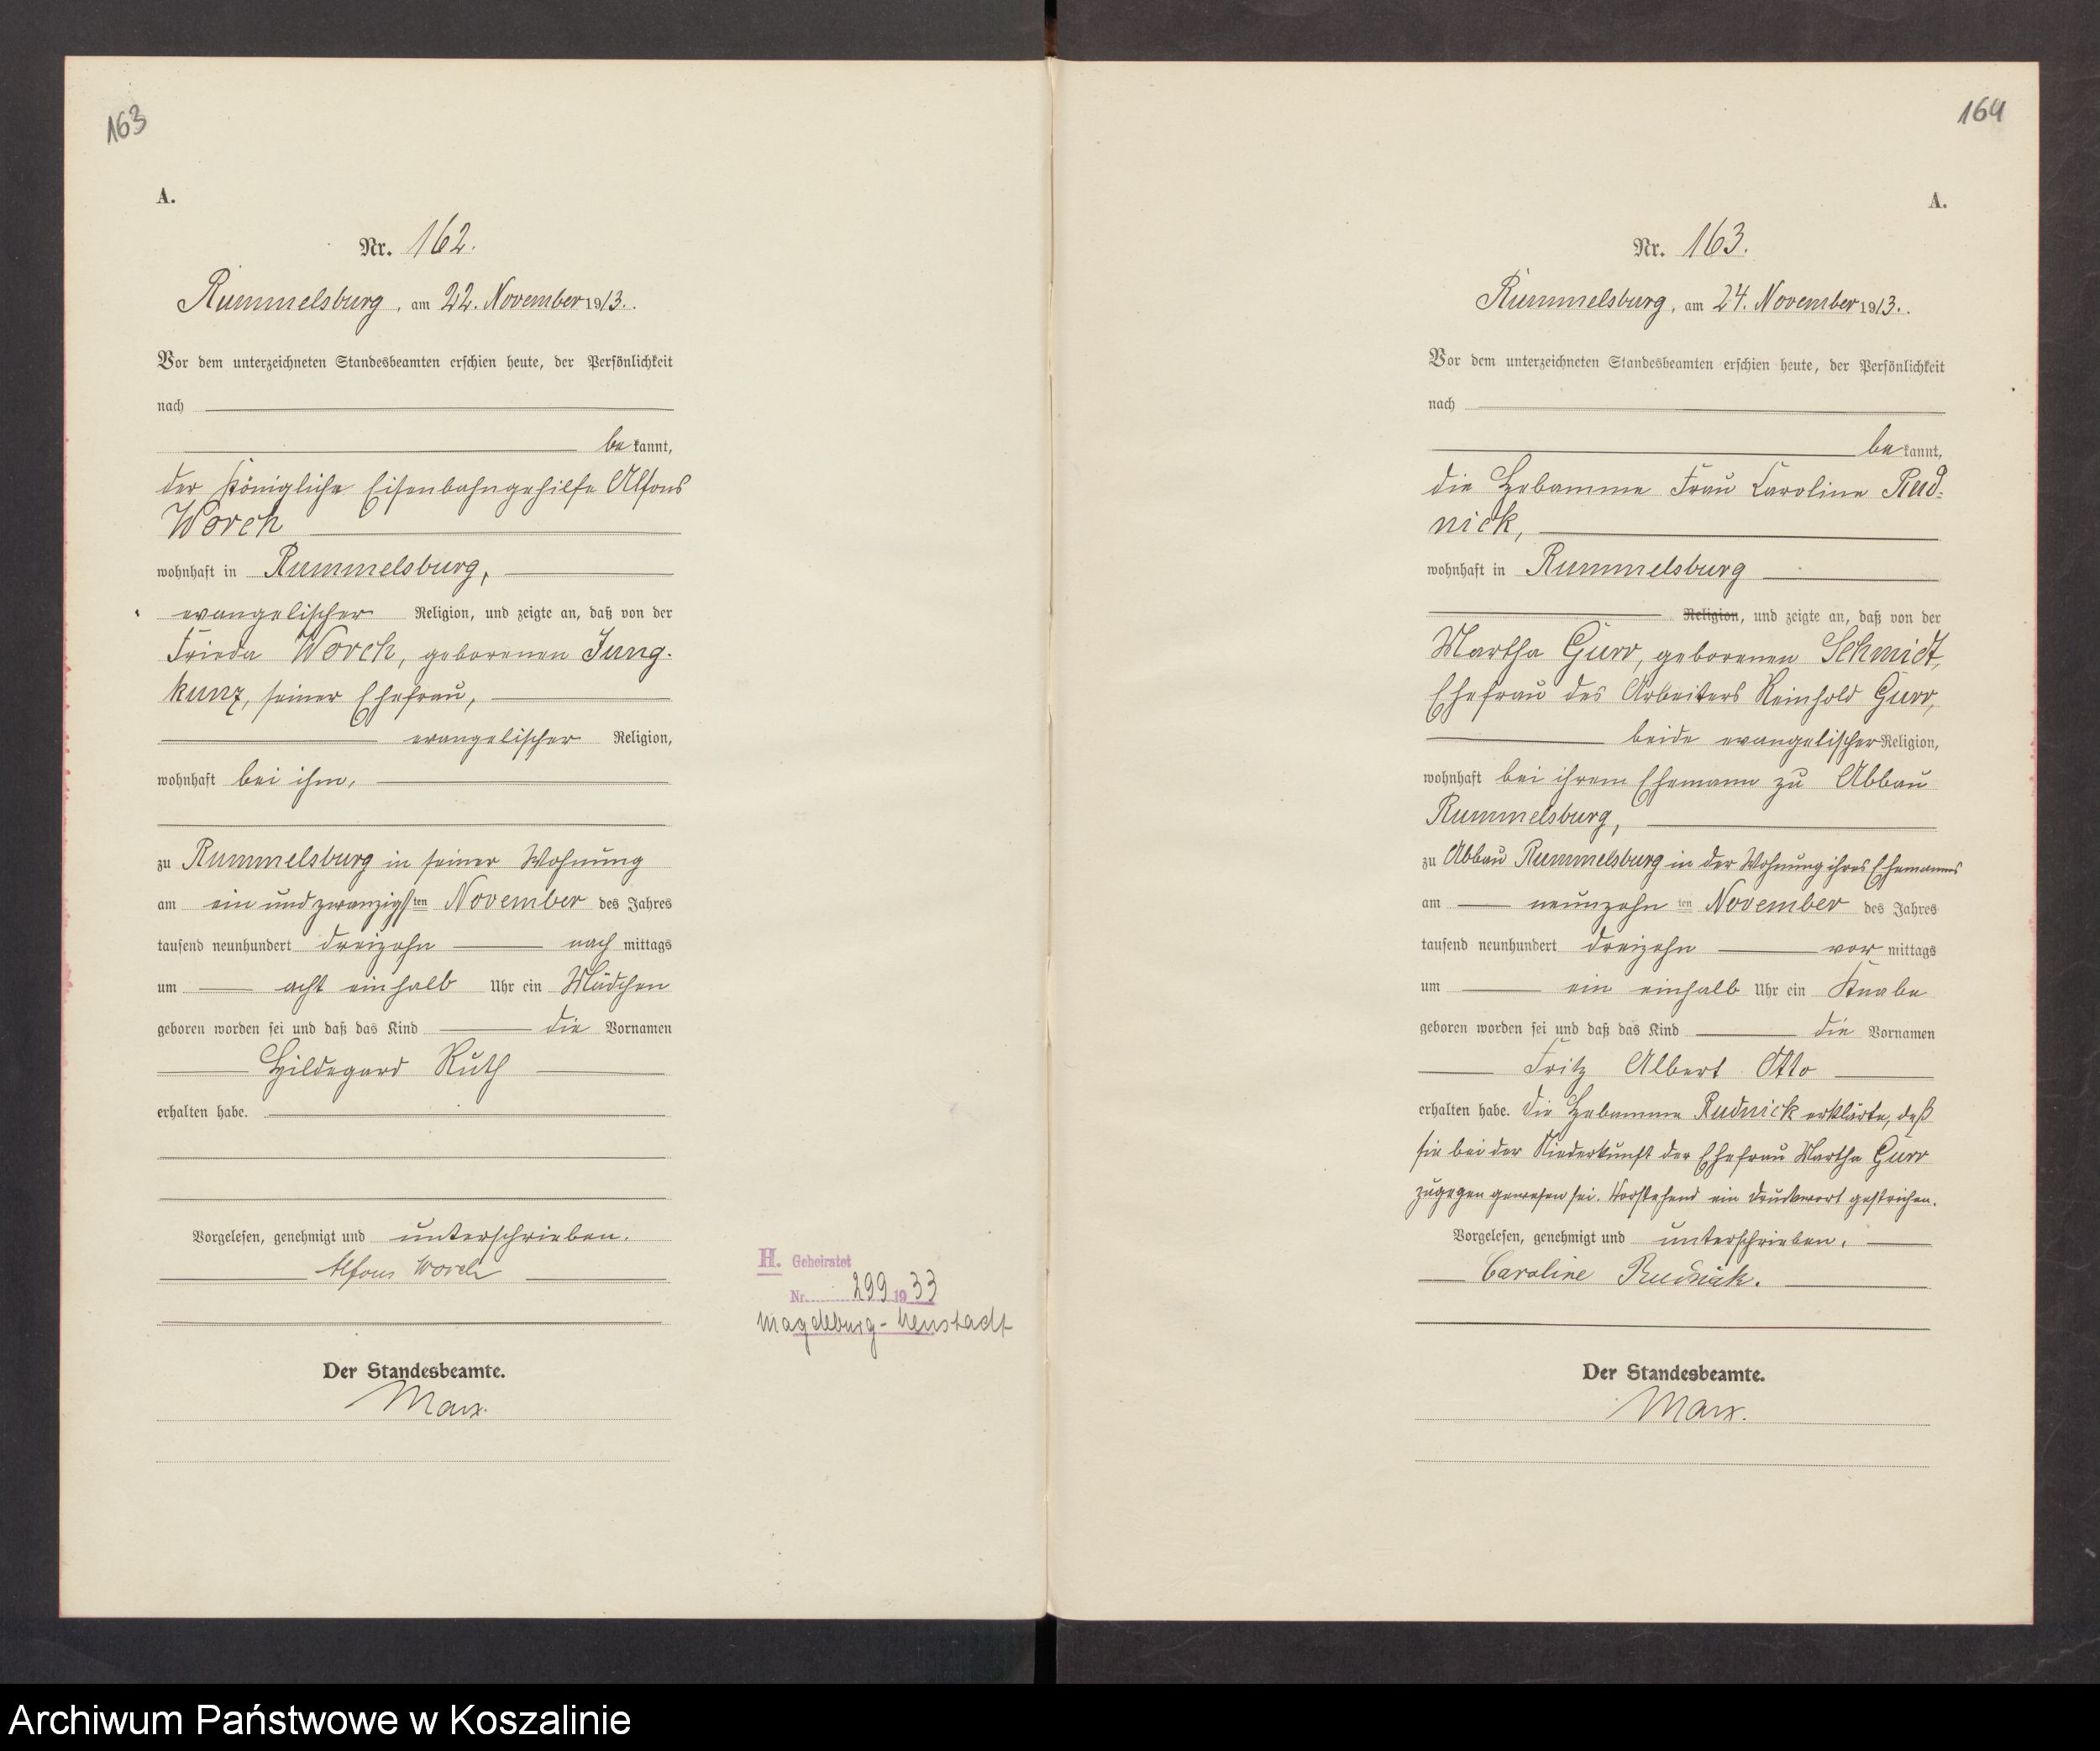 163
A.
Nr. 162.
Rummelsburg, am 22. November 1913.
Vor dem unterzeichneten Standesbeamten erschien heute, der Persönlichkeit
nach
bekannt,
der Königliche Eisenbahngehilfe Alfons
Worch
wohnhaft in Rummelsburg,
evangelischer Religion, und zeigte an, daß von der
Frieda Worch, geborenen Jung-
kunz, seiner Ehefrau,
evangelischer Religion,
wohnhaft bei ihm,
zu Rummelsburg in seiner Wohnung
am ein und zwanzigsten November des Jahres
tausend neunhundert dreizehn nachmittags
um acht einhalb Uhr ein Mädchen
geboren worden sei und daß das Kind die Vornamen
Hildegard Ruth
erhalten habe.
Vorgelesen, genehmigt und unterschrieben.
Alfons Worch
Der Standesbeamte.
Marx.
H. Geheiratet
Nr. 299 1933
Magdeburg-Neustadt
164
A.
Nr. 163.
Rummelsburg, am 24. November 1913.
Vor dem unterzeichneten Standesbeamten erschien heute, der Persönlichkeit
nach
bekannt,
die Hebamme Frau Caroline Rud-
nick,
wohnhaft in Rummelsburg
Religion, und zeigte an, daß von der
Martha Gurr, geborenen Schmidt,
Ehefrau des Arbeiters Reinhold Gurr,
beide evangelischer Religion,
wohnhaft bei ihrem Ehemann zu Abbau
Rummelsburg,
zu Abbau Rummelsburg in der Wohnung ihres Ehemannes
am neunzehnten November des Jahres
tausend neunhundert dreizehn vormittags
um ein einhalb Uhr ein Knabe
geboren worden sei und daß das Kind die Vornamen
Fritz Albert Otto
erhalten habe. Die Hebamme Rudnick erklärte, daß
sie bei der Niederkunft der Ehefrau Martha Gurr
zugegen gewesen sei. Vorstehend ein Druckwort gestrichen.
Vorgelesen, genehmigt und unterschrieben.
Caroline Rudnick.
Der Standesbeamte.
Marx.
Archiwum Państwowe w Koszalinie